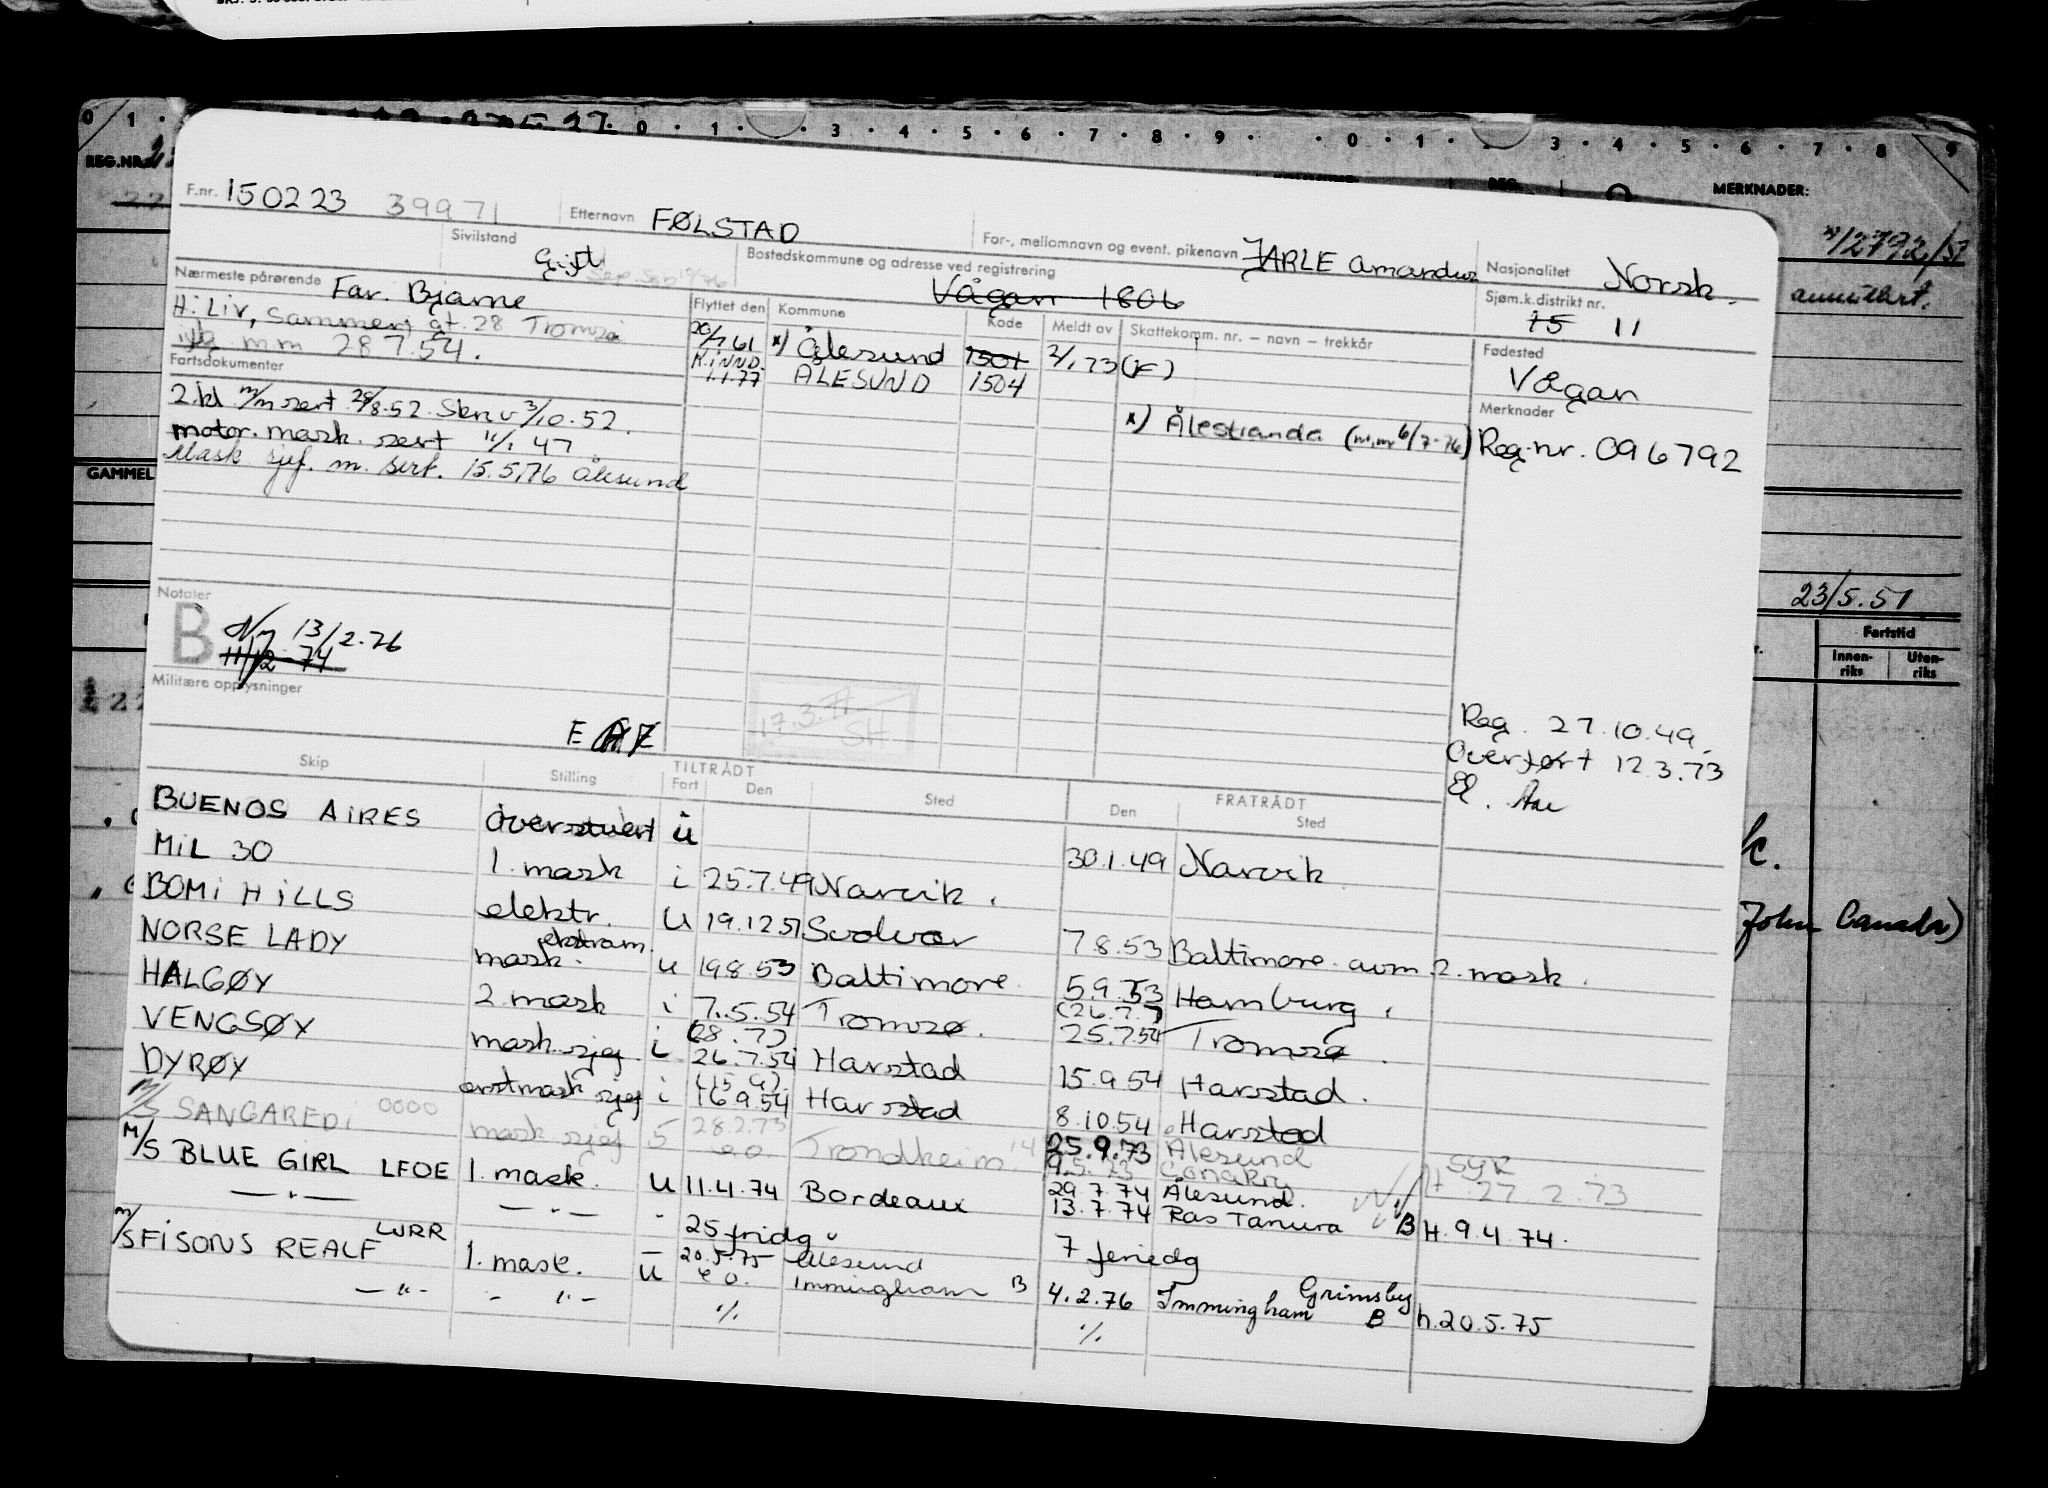 0 1 · 0 · 1 · 3 · 4 · 5 · 6 · 7 · 8 · 9 · 0 · 1 · 3 · 4 · 5 · 6 · 7 · 8 9
REG.NR.
MERKNADER:
2792/51
GAMMEL
23/5.51
Fartstid
Innen-riks Uten-riks
John Canada)
F.nr. 150223 39971 Etternavn FØLSTAD For-, mellomnavn og event. pikenavn JARLE Amandus Nasjonalitet Norsk.
Sivilstand Gift Bostedskommune og adresse ved registrering Vågan 1806 Sjøm.k.distrikt nr. 15 11
Nærmeste pårørende Far. Bjarne
H. Liv, Sammerj gt. 28 Tromsø
m.m 28 7.54.
Flyttet den Kommune Kode Meldt av Skattekomm. nr. – navn – trekkår
20/1 61 x) Ålesund 1501 2/1 73 (F)
K.INND. 1.1.77 ÅLESUND 1504
x) Ålestranda (m.m 6/7-76)
Fødested
Vågan
Merknader
Reg.nr. 096792
Fartsdokumenter
2.kl m/m sert 28/8.52. Skr.v 3/10.52.
motor. mask. sert 11/1 47.
Mask sjef. m. sert. 15.5.76 Ålesund
Notater
B Ny 13/2.76
11/12-74
Militære opplysninger
E
17.3.77
SH
Reg. 27.10.49.
Overført 12.3.73
Skip Stilling TILTRÅDT Fart Den Sted FRATRÅDT Den Sted
BUENOS AIRES overstuert u 30.1.49 Narvik
MIL 30 1. mask i 25.7.49 Narvik.
BOMI HILLS elektr. u 19.12.51 Svolvær 7 8.53 Baltimore avm. 2. mask.
NORSE LADY ekstram. mask. u 19.8.53 Baltimore 5.9.53 Hamburg.
HALGØY 2. mask i 7.5.54 Tromsø. (26.7.?) 25.7.54 Tromsø.
VENGSØY mask. sjef. i (28.7) 26.7.54 Harstad 15.9.54 Harstad.
DYRØY mask sjef i (15.9). 16 9.54 Harstad 8.10.54 Harstad
M/S SANGAREDI 0000 mask sjef 5 28.2.73 Trondheim 25.9.73 Ålesund
9.5.73 Conakry SYK 27.2.73
M/S BLUE GIRL LFOE 1. mask. u 11.4.74 Bordeaux 29.7.74 Ålesund.
— " — — " — 13.7.74 Ras Tanura B H. 9.4.74.
25 fridg. 7 feriedg
M/S FISONS REALF LURR 1. mask. u 20.5.75 Ålesund
e.o. Immingham B 4.2.76 Immingham Grimsby B h. 20.5.75
— " — — " — % %